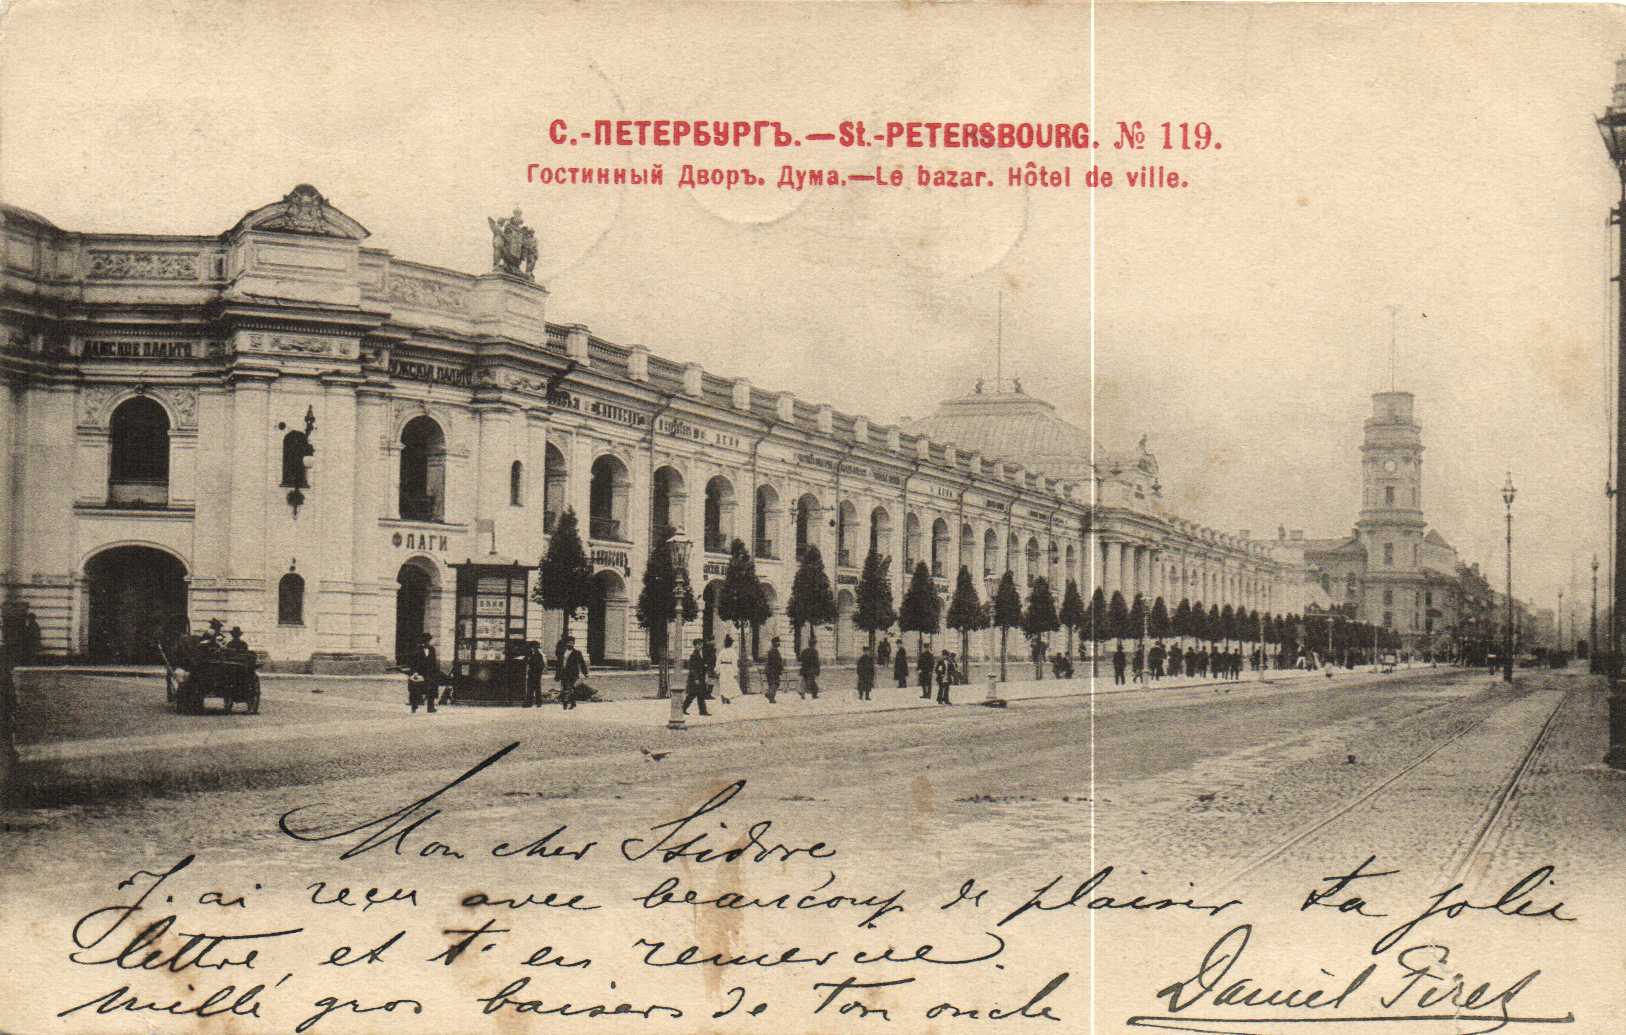 С.-ПЕТЕРБУРГЪ.—St.-PETERSBOURG. № 119.
Гостинный Дворъ. Дума.—Le bazar. Hôtel de ville.
ДАМСКОЕ ПАЛЬТО
МУЖСКОЕ ПАЛЬТО
ФЛАГИ
Mon cher Isidore
J'ai reçu avec beaucoup de plaisir ta jolie
lettre, et t'en remercie.
Mille gros baisers de ton oncle
Daniel Piret